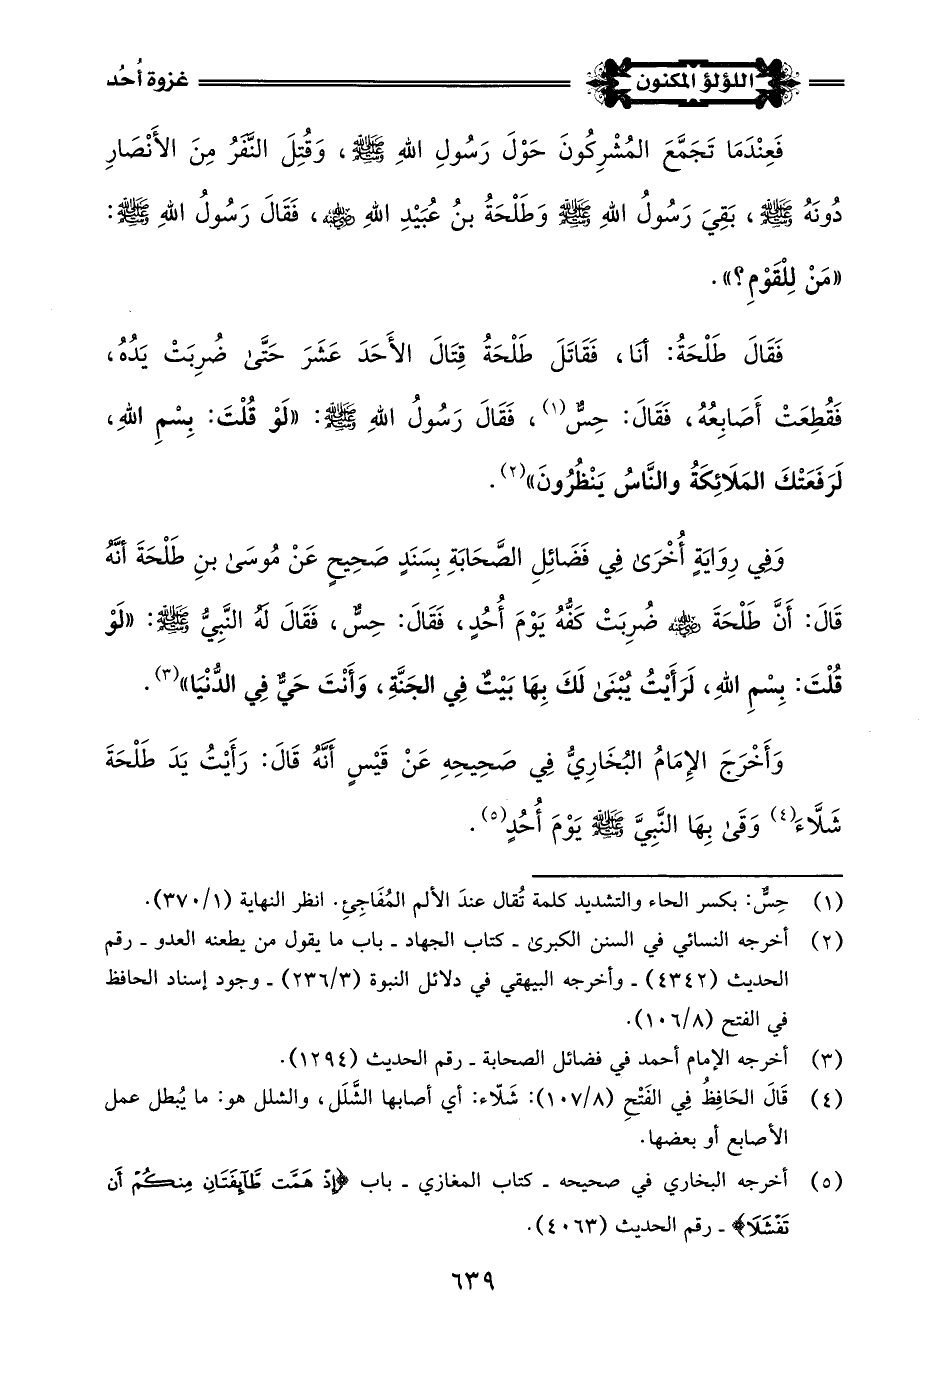 اللؤلؤ المكنون غزوة أُحُد
فَعِنْدَمَا تَجَمَّعَ المُشْرِكُونَ حَوْلَ رَسُولِ اللهِ ﷺ، وَقُتِلَ النَّفَرُ مِنَ الأَنْصَارِ
دُونَهُ ﷺ، بَقِيَ رَسُولُ اللهِ ﷺ وَطَلْحَةُ بنُ عُبَيْدِ اللهِ رضي الله عنه، فَقَالَ رَسُولُ اللهِ ﷺ:
«مَنْ لِلْقَوْمِ؟».
فَقَالَ طَلْحَةُ: أنَا، فَقَاتَلَ طَلْحَةُ قِتَالَ الأَحَدَ عَشَرَ حَتَّىٰ ضُرِبَتْ يَدُهُ،
فَقُطِعَتْ أَصَابِعُهُ، فَقَالَ: حِسٌّ(١)، فَقَالَ رَسُولُ اللهِ ﷺ: «لَوْ قُلْتَ: بِسْمِ اللهِ،
لَرَفَعَتْكَ المَلَائِكَةُ والنَّاسُ يَنْظُرُونَ»(٢).
وَفِي رِوَايَةٍ أُخْرَىٰ فِي فَضَائِلِ الصَّحَابَةِ بِسَنَدٍ صَحِيحٍ عَنْ مُوسَىٰ بنِ طَلْحَةَ أنَّهُ
قَالَ: أَنَّ طَلْحَةَ رضي الله عنه ضُرِبَتْ كَفُّهُ يَوْمَ أُحُدٍ، فَقَالَ: حِسٌّ، فَقَالَ لَهُ النَّبِيُّ ﷺ: «لَوْ
قُلْتَ: بِسْمِ اللهِ، لَرَأَيْتُ يُبْنَىٰ لَكَ بِهَا بَيْتٌ فِي الجَنَّةِ، وَأَنْتَ حَيٌّ فِي الدُّنْيَا»(٣).
وَأَخْرَجَ الإِمَامُ البُخَارِيُّ فِي صَحِيحِهِ عَنْ قَيْسٍ أَنَّهُ قَالَ: رَأَيْتُ يَدَ طَلْحَةَ
شَلَّاءَ(٤) وَقَىٰ بِهَا النَّبِيَّ ﷺ يَوْمَ أُحُدٍ(٥).
(١) حِسٌّ: بكسر الحاء والتشديد كلمة تُقال عندَ الألم المُفَاجِئِ. انظر النهاية (٣٧٠/١).
(٢) أخرجه النسائي في السنن الكبرىٰ ـ كتاب الجهاد ـ باب ما يقول من يطعنه العدو ـ رقم
الحديث (٤٣٤٢) ـ وأخرجه البيهقي في دلائل النبوة (٢٣٦/٣) ـ وجود إسناد الحافظ
في الفتح (١٠٦/٨).
(٣) أخرجه الإمام أحمد في فضائل الصحابة ـ رقم الحديث (١٢٩٤).
(٤) قَالَ الحَافِظُ فِي الفَتْحِ (١٠٧/٨): شَلّاء: أي أصابها الشَّلَل، والشلل هو: ما يُبطل عمل
الأصابع أو بعضها.
(٥) أخرجه البخاري في صحيحه ـ كتاب المغازي ـ باب ﴿إِذْ هَمَّت طَّآئِفَتَانِ مِنكُمْ أَن
تَفْشَلَا﴾ ـ رقم الحديث (٤٠٦٣).
٦٣٩